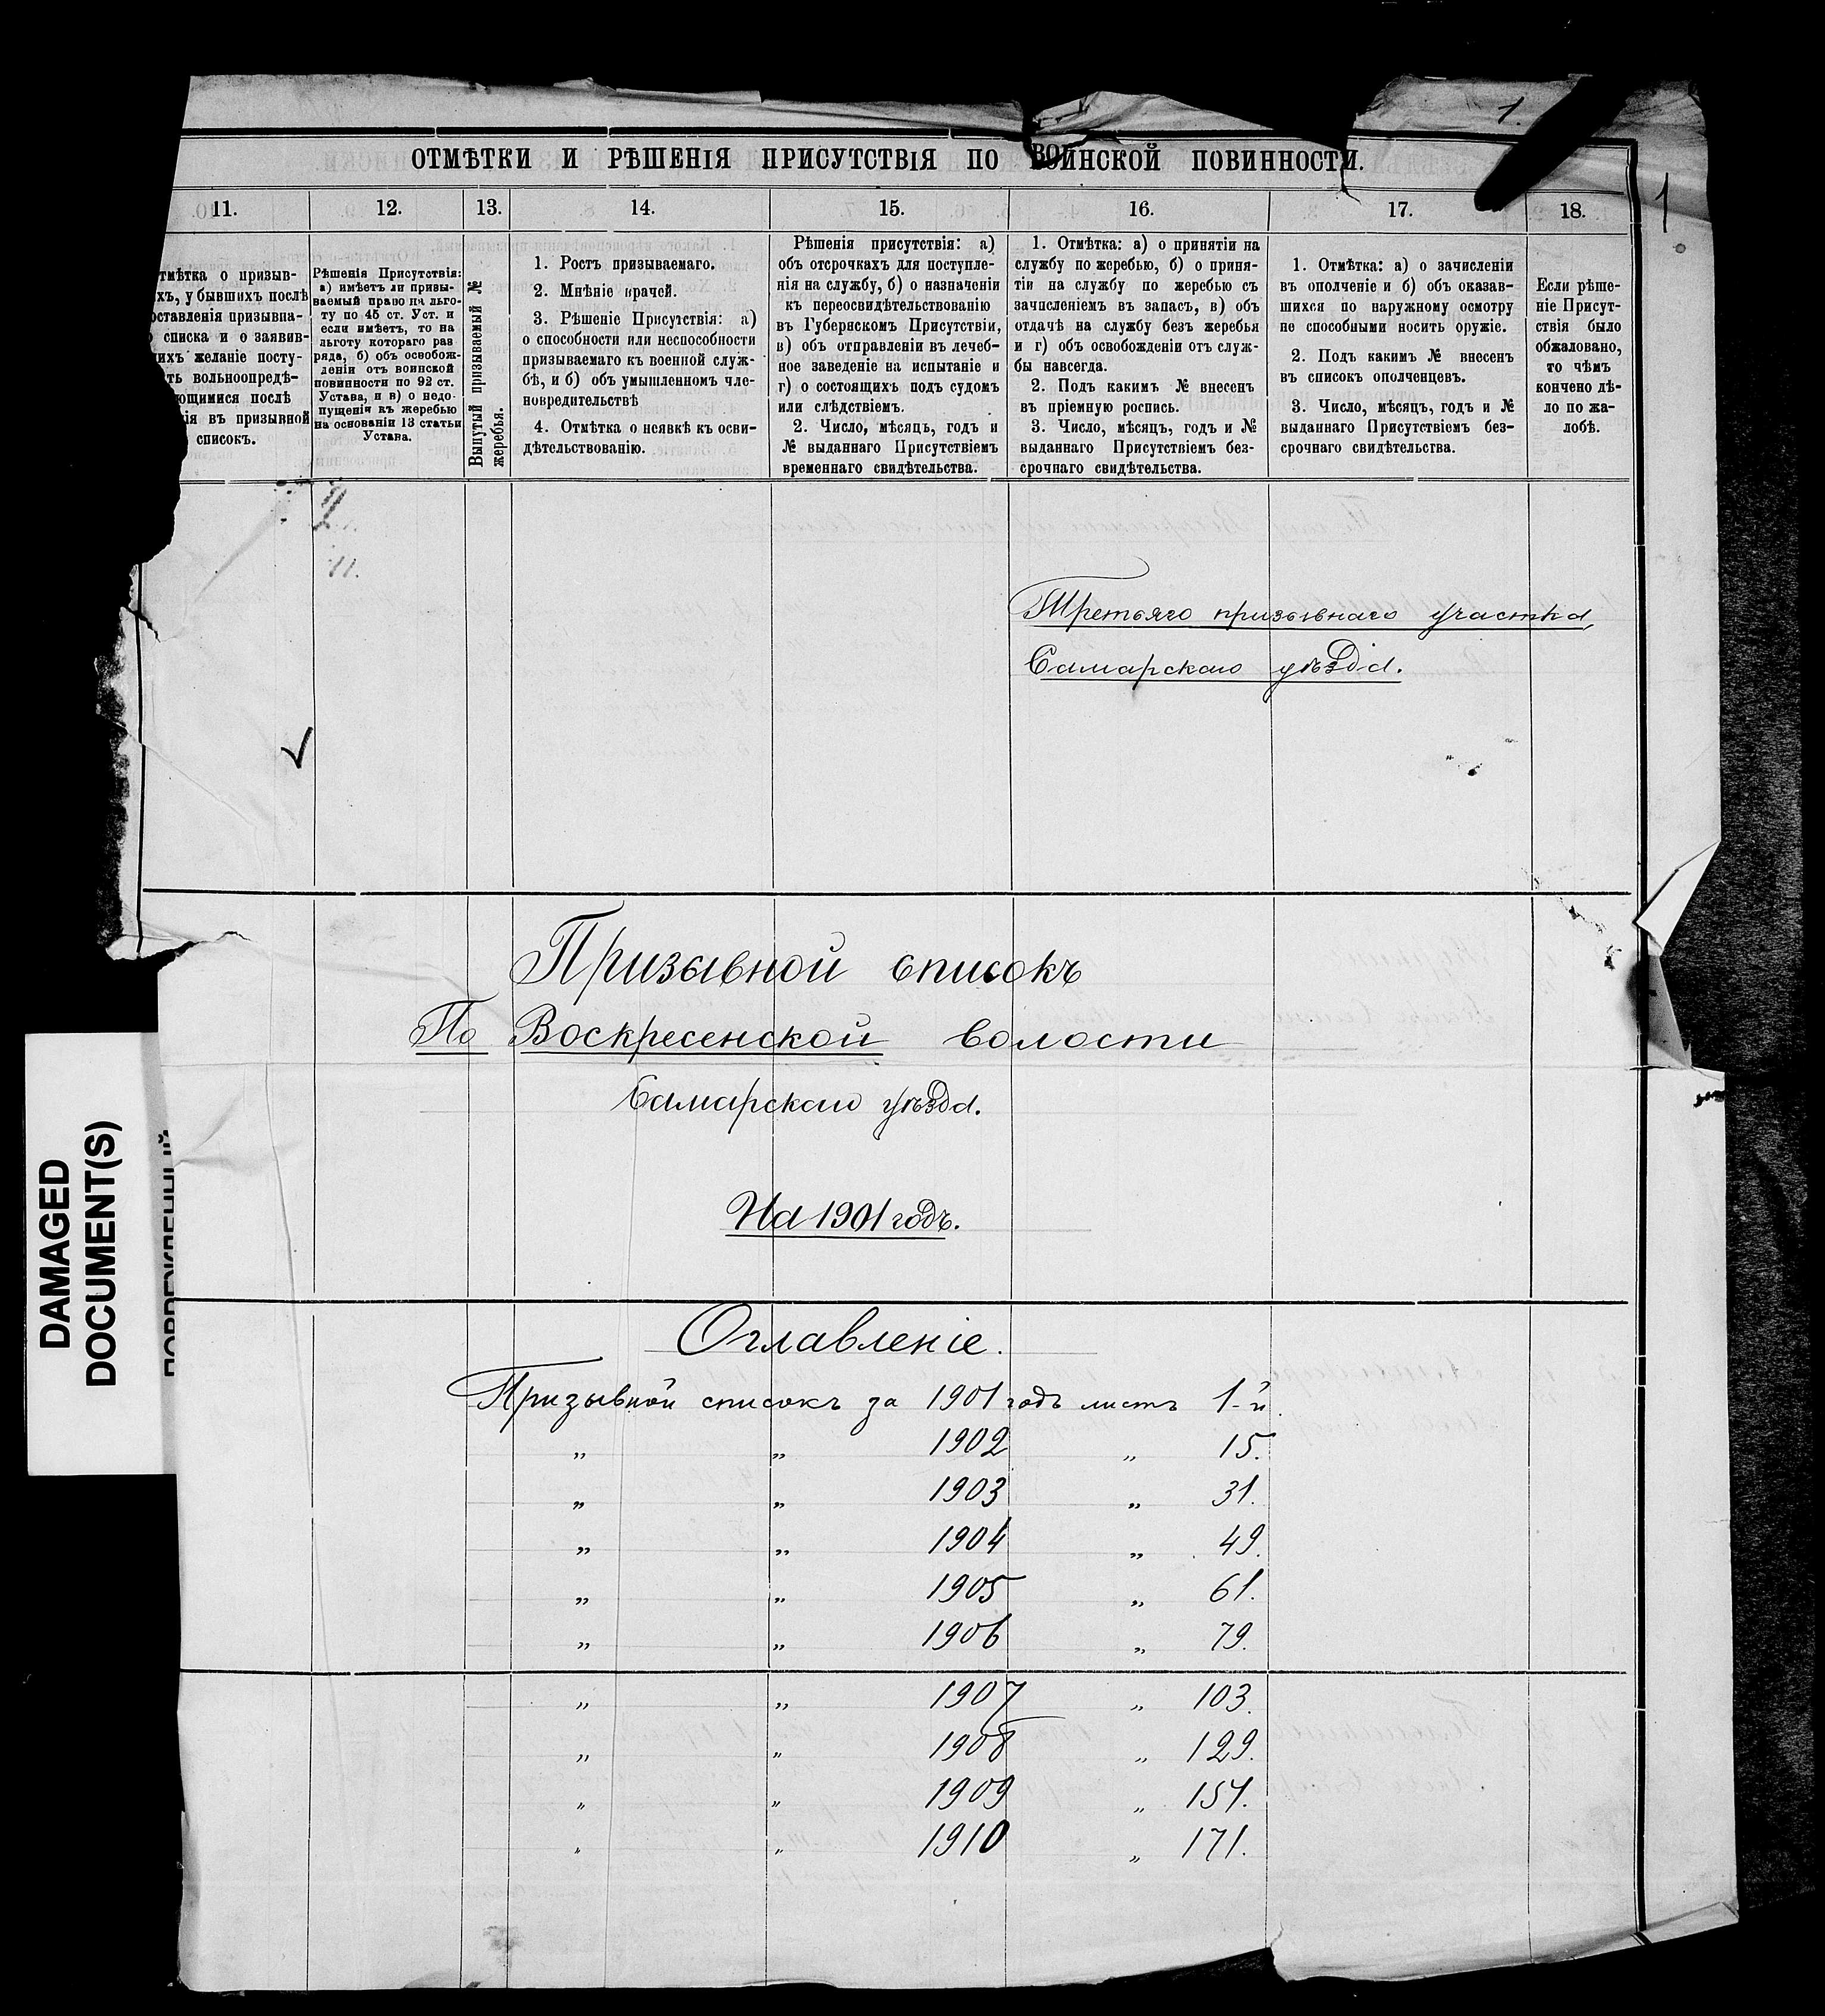 1.
1
ОТМѢТКИ И РѢШЕНІЯ ПРИСУТСТВІЯ ПО ВОИНСКОЙ ПОВИННОСТИ.
11. 12. 13. 14. 15. 16. 17. 18.
тмѣтка о призыв-
хъ, у бывшихъ послѣ
оставленія призывна-
списка и о заявив-
ихъ желаніе посту-
ть вольноопредѣ-
ющимися послѣ
ія въ призывной
списокъ.
Рѣшенія Присутствія:
а) имѣетъ ли призы-
ваемый право на льго-
ту по 45 ст. Уст. и
если имѣетъ, то на
льготу котораго раз
ряда, б) объ освобож-
деніи отъ воинской
повинности по 92 ст.
Устава, и в) о недо-
пущеніи къ жеребью
на основаніи 13 статьи
Устава.
Вынутый призываемый №
жеребья.
1. Ростъ призываемаго.
2. Мнѣніе врачей.
3. Рѣшеніе Присутствія: а)
о способности или неспособности
призываемаго къ военной служ-
бѣ, и б) объ умышленномъ чле-
новредительствѣ
4. Отмѣтка о неявкѣ къ осви-
дѣтельствованію.
Рѣшенія присутствія: а)
объ отсрочкахъ для поступле-
нія на службу, б) о назначеніи
къ переосвидѣтельствованію
въ Губернскомъ Присутствіи,
в) объ отправленіи въ лечеб-
ное заведеніе на испытаніе и
г) о состоящихъ подъ судомъ
или слѣдствіемъ.
2. Число, мѣсяцъ, годъ и
№ выданнаго Присутствіемъ
временнаго свидѣтельства.
1. Отмѣтка: а) о принятіи на
службу по жеребью, б) о приня-
тіи на службу по жеребью съ
зачисленіемъ въ запасъ, в) объ
отдачѣ на службу безъ жеребья
и г) объ освобожденіи отъ служ-
бы навсегда.
2. Подъ какимъ № внесенъ
въ пріемную роспись.
3. Число, мѣсяцъ, годъ и №
выданнаго Присутствіемъ без-
срочнаго свидѣтельства.
1. Отмѣтка: а) о зачисленіи
въ ополченіе и б) объ оказав-
шихся по наружному осмотру
не способными носить оружіе.
2. Подъ какимъ № внесенъ
въ списокъ ополченцевъ.
3. Число, мѣсяцъ, годъ и №
выданнаго Присутствіемъ без-
срочнаго свидѣтельства.
Если рѣше-
ніе Присут-
ствія было
обжаловано,
то чѣмъ
кончено дѣ-
ло по жа-
лобѣ.
11.
Третьяго призывнаго участка,
Самарскаго уѣзда.
Призывной списокъ
По Воскресенской волости
Самарскаго уѣзда.
На 1901 годъ.
Оглавленіе.
Призывной списокъ за 1901 годъ листъ 1-й.
„ „ 1902 „ 15.
„ „ 1903 „ 31.
„ „ 1904 „ 49.
„ „ 1905 „ 61.
„ „ 1906 „ 79.
„ „ 1907 „ 103.
„ „ 1908 „ 129.
„ „ 1909 „ 151.
„ „ 1910 „ 171.
DAMAGED
DOCUMENT(S)